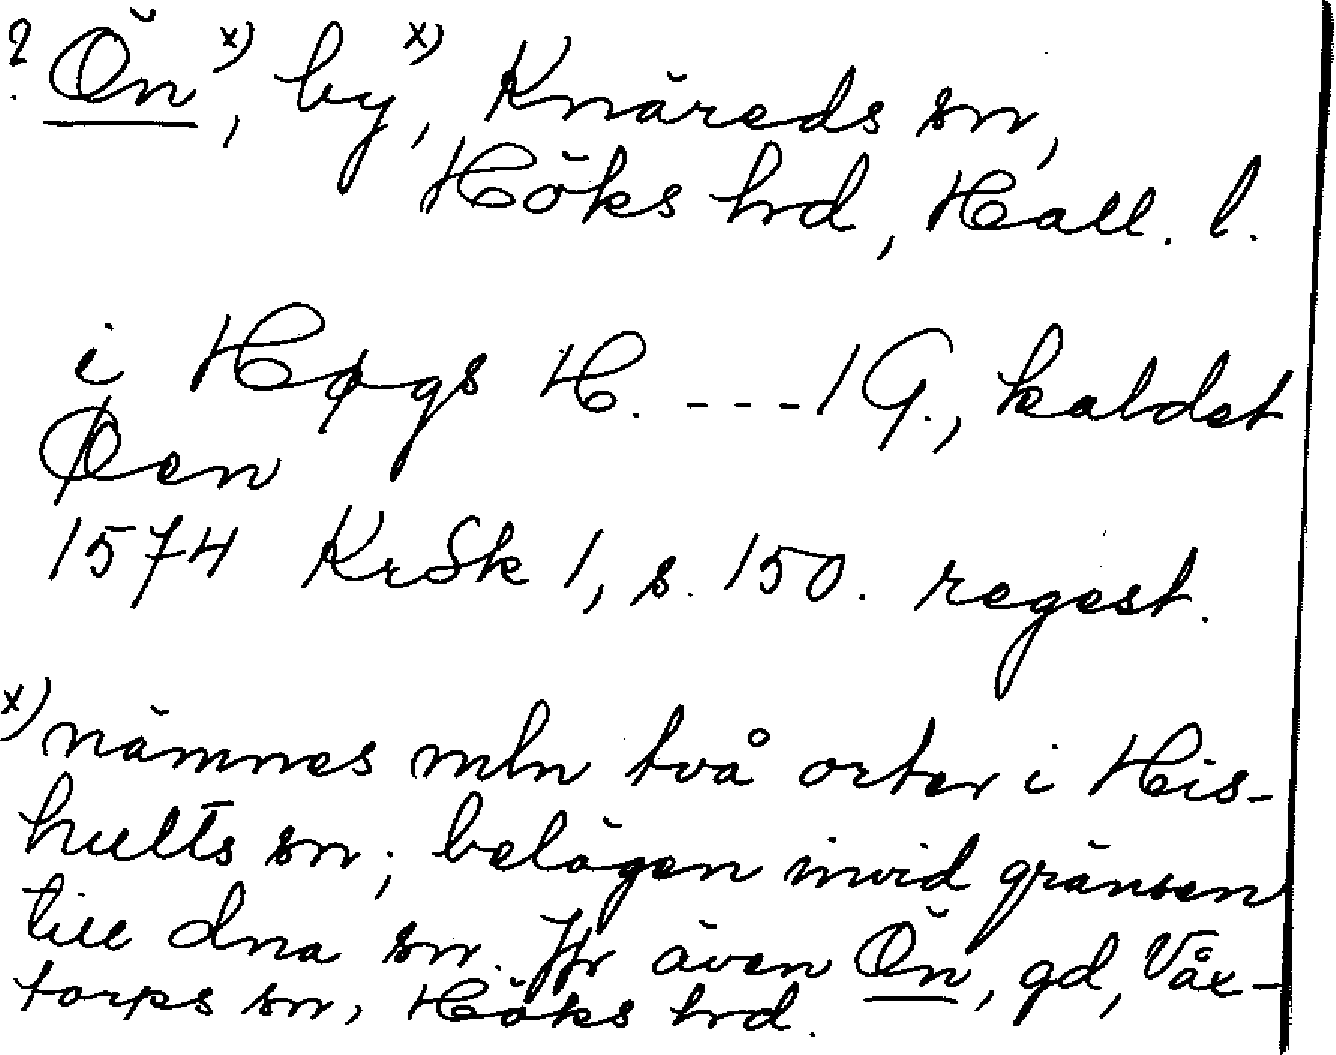 ? Ön x), by x), Knäreds sn,
Höks hd, Hall. l.
i Høgs H. ---1 G., kaldet
Øen
1574 KrSk 1, s. 150. regest.
x) nämnes mln två orter i His-
hults sn; belägen invid gränsen
till dna sn. Jfr även Ön, gd, Våx-
torps sn, Höks hd.